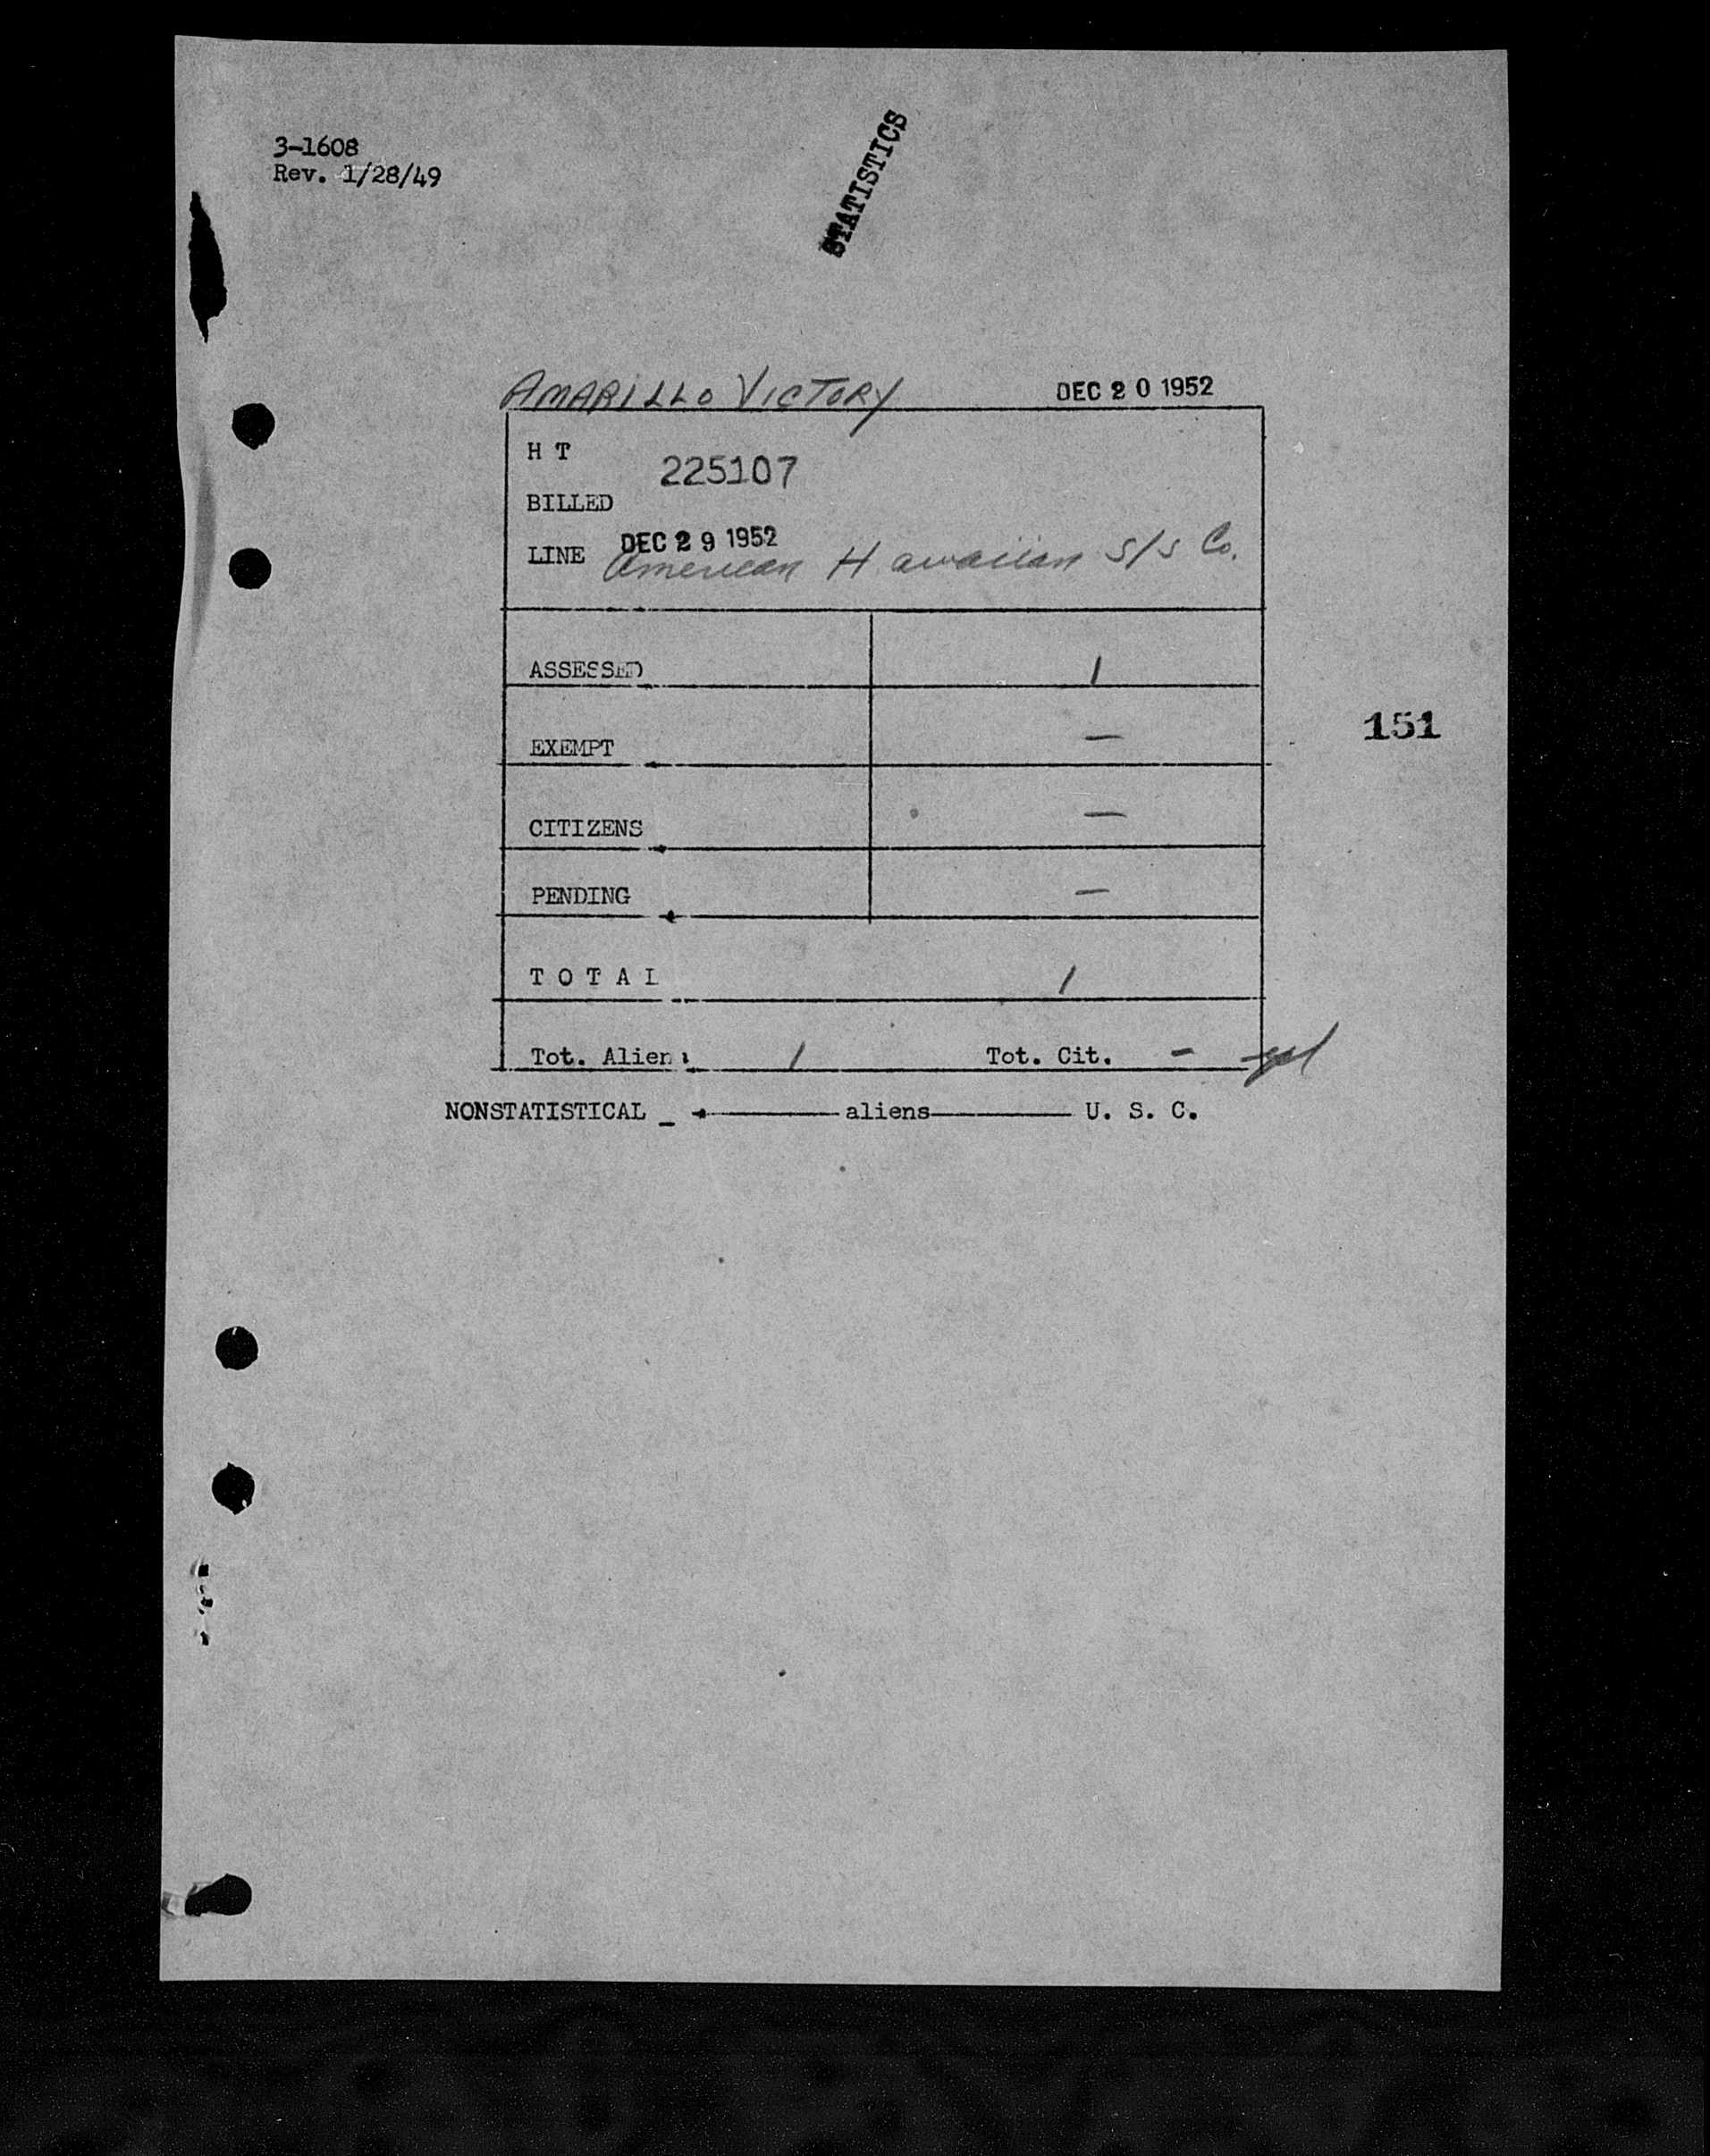 3-1608
Rev. 1/28/49
STATISTICS
AMARILLO VICTORY DEC 20 1952
H T 225107
BILLED
DEC 29 1952
LINE American Hawaiian S/S Co.
ASSESSED 1
EXEMPT —
151
CITIZENS —
PENDING —
T O T A L 1
Tot. Aliens 1 Tot. Cit. -
NONSTATISTICAL _ aliens U. S. C.